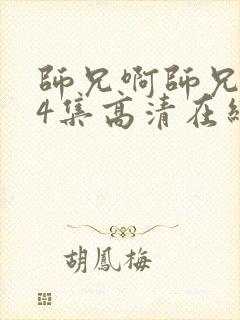 師兄啊師兄
4集高清在線
胡鳳梅